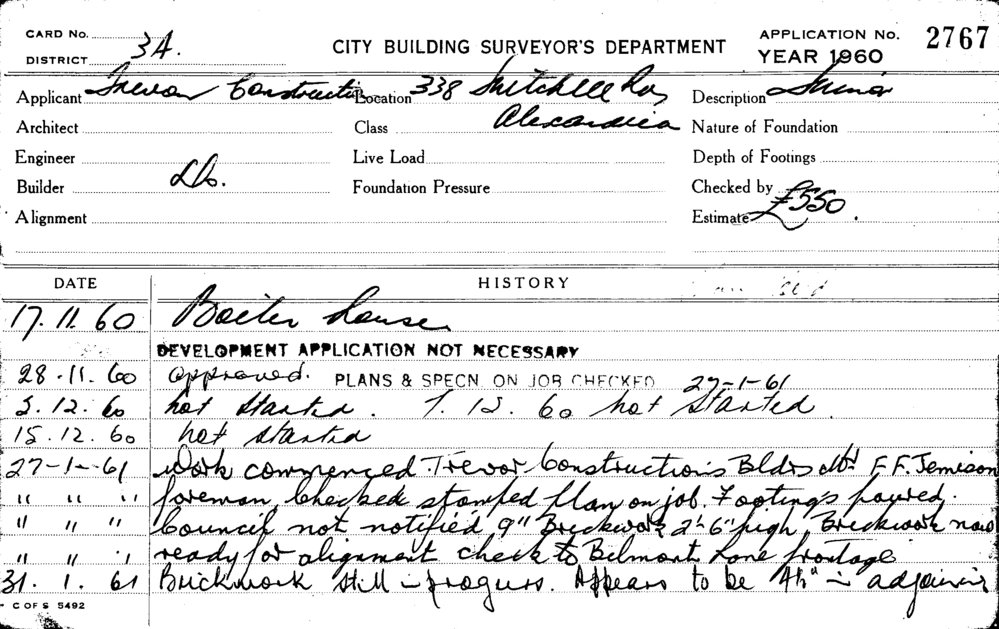 CARD No. 34.
DISTRICT
CITY BUILDING SURVEYOR'S DEPARTMENT
APPLICATION No. 2767
YEAR 1960
Applicant Trevor Construction Location 338 Mitchell Rd, Description Minor
Architect Class Alexandria Nature of Foundation
Engineer Live Load Depth of Footings
Builder Do. Foundation Pressure Checked by
Alignment Estimate £550.
DATE HISTORY
17.11.60 Boiler house
DEVELOPMENT APPLICATION NOT NECESSARY
28.11.60 Approved. PLANS & SPECN. ON JOB CHECKED 27-1-61
5.12.60 not started. 7.12.60 not started.
15.12.60 not started
27-1-61 Work commenced. Trevor Constructions Bldrs Mr. F.F. Jemison
" " " foreman, Checked stamped plan on job. Footings poured.
" " " Council not notified. 9" Brickwork 2'-6" high, Brickwork now
" " " ready for alignment check to Belmont Lane frontage
31.1.61 Brickwork still in progress. Appears to be 4½" in adjoining
C OF S 5492